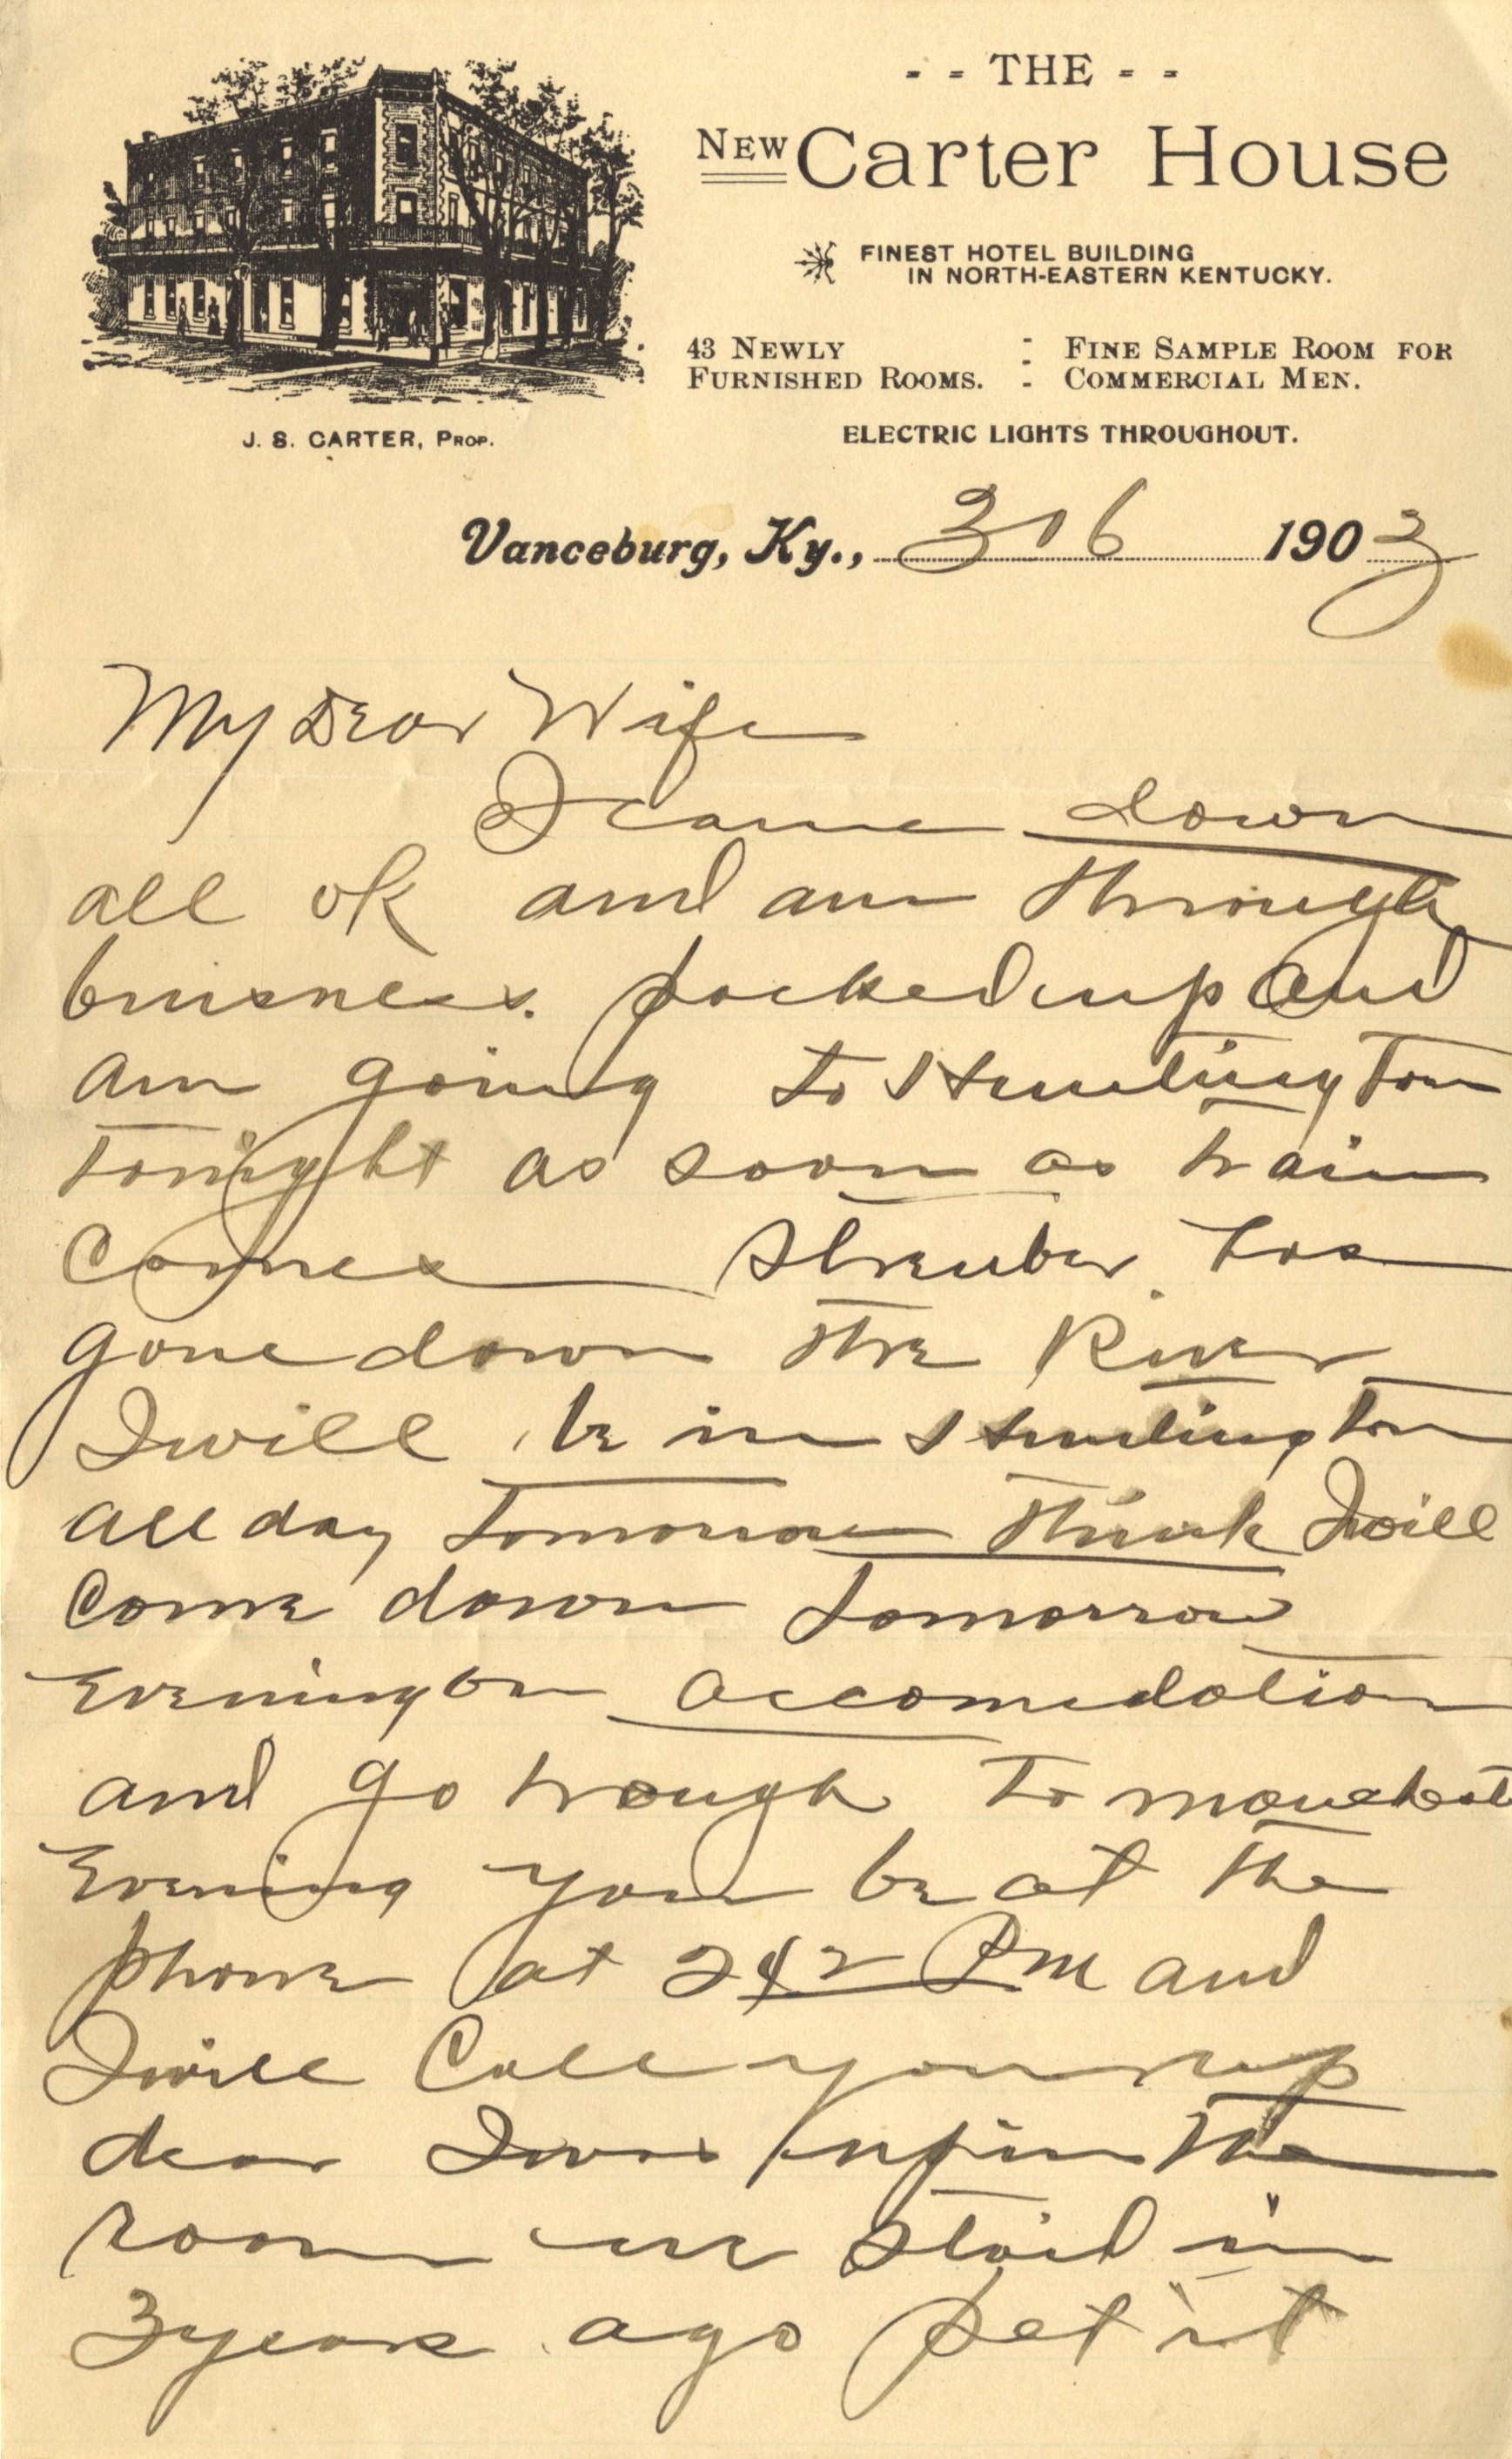 - - THE - -
NEW Carter House
FINEST HOTEL BUILDING
IN NORTH-EASTERN KENTUCKY.
43 NEWLY FURNISHED ROOMS. : FINE SAMPLE ROOM FOR COMMERCIAL MEN.
J. S. CARTER, PROP.
ELECTRIC LIGHTS THROUGHOUT.
Vanceburg, Ky., 3 6 1903
My Dear Wife
I came down
all ok and am through
buisness. packed up and
am going to Huntington
tonight as soon as train
Comes has
gone down the River
I will be in Huntington
all day tomorrow think I will
come down tomorrow
Evening on accomedation
and go trough to
Evening you be at the
phone at PM and
I will Call you up
dear I was up in the
room we staid in
3 years ago it